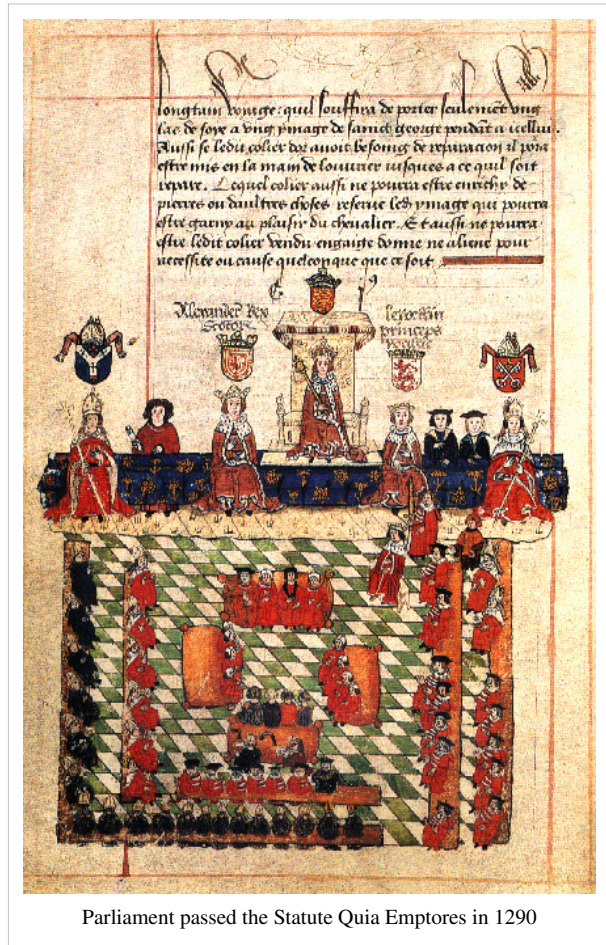 longtain voyage: quil souffira de porter seulement ung
las de soye a ung ymage de sainct george pendant a icellui.
Aussi se ledit colier dor avoit besoing de reparacion il pora
estre mis en la main de louvrier iusques a ce quil soit
repare. Lequel colier aussi ne pourra estre enrichy de
pierres ou daultres choses reserve led ymage qui pourra
estre garny au plaisir du chevalier. Et aussi ne pourra
estre ledit colier vendu engaige donne ne aliene pour
necessite ou cause quelconque que ce soit
Alexander Rex
Scotorum
lewellin
princeps
Parliament passed the Statute Quia Emptores in 1290